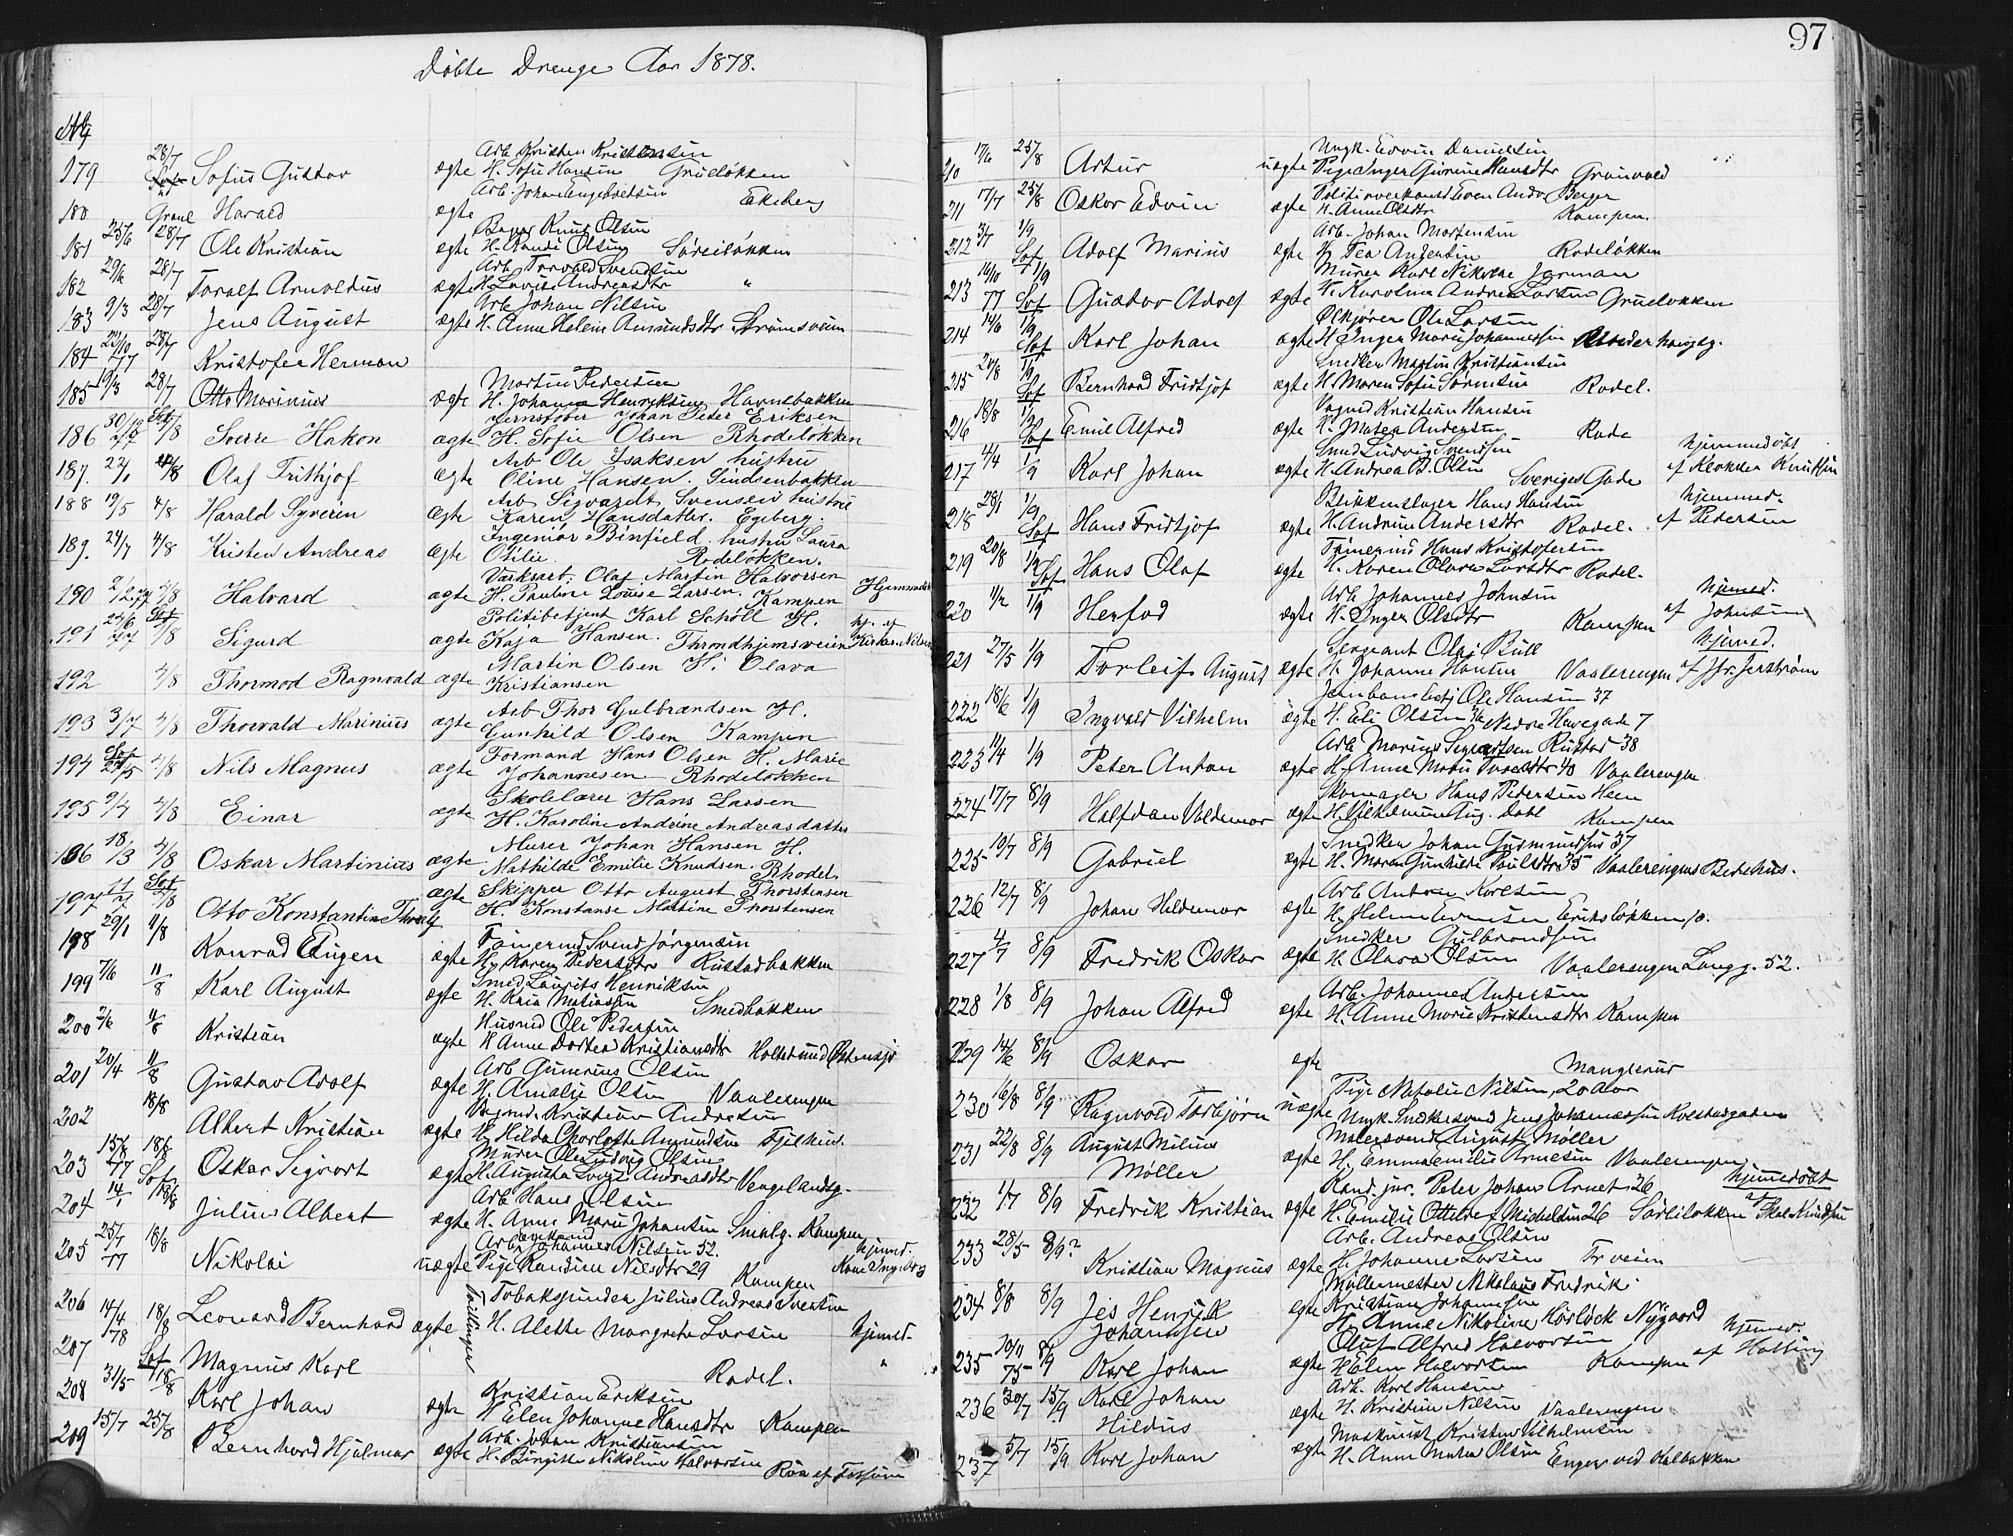 Döbte Drenge Aar 1878.
97
179 28/7 Sofus Gustav ægte Arb. Kristen Kristensen
H. Sofie Hansen Grüeløkken
180 Harald ægte Arb. Johan Engebretsen Ekeberg
181 25/6 28/7 Ole Kristian ægte Knut Olsen
H. Randi Olsen
182 29/6 28/7 Toralf Arnoldus ægte Arb. Torvald Svendsen
H. Lovise Andreasdtr "
183 9/3 28/7 Jens August ægte Arb. Johan Nilsen
H. Anne Helene Amundsdtr Strømsveien
184 23/10 77 28/7 Kristofer Herman
185 19/3 28/7 Otto Marinius ægte Martin Pedersen
H. Johanne Henriksen Havnebakken
186 30/12 77 4/8 Sverre Hakon ægte Jernstøber Johan Peter Eriksen
H. Sofie Olsen Rhodeløkken
187. 22/1 4/8 Olaf Frithjof ægte Arb Ole Isaksen hustru
Oline Hansen. Sindsenbakken
188 19/5 4/8 Harald Syverin ægte Arb Sigvardt Svensen hustru
Karen Hansdatter. Egeberg.
189. 24/7 4/8 Kristen Andreas ægte Ingeniør Binfield. hustru Laura
Otilie Rodeløkken.
190 2/12 77 4/8 Halvard ægte Værksarb. Olaf Martin Halvorsen
H. Pauline Louise Larsen. Kampen Hjemmedøbt
191 24/6 77 4/8 Sigurd ægte Politibetjent Karl Schøll H.
Kaja Hansen. Throndhjemsveien
192 4/8 Thormod Ragnvald ægte Martin Olsen H. Olava
Kristiansen
193 3/7 4/8 Thorvald Marinius ægte Arb Thor Gulbrandsen H.
Gunhild Olsen Kampen
194 4/8 Nils Magnus ægte Formand Hans Olsen H. Marie
Johannesen. Rhodeløkken
195 4/8 Einar ægte Skolelærer Hans Larsen
H. Karoline Andrine Andreasdatter
196 18/3 4/8 Oskar Martinius ægte Murer Johan Hansen H.
Mathilde Emilie Knudsen. Rhodel.
197 Otto Konstantin ægte Skipper Otto August Thorstensen
H. Konstanse Martine Thorstensen
198 29/1 11/8 Konrad Eugen ægte Tømermd Svend Jørgensen
H. Karen Pedersdtr Rustadbakken
199 7/6 11/8 Karl August ægte Smed Laurits Henriksen
H. Kria Matiassen Smedbakken
200 2/6 11/8 Kristian ægte Husmd Ole Pedersen
H Anne Dortea Kristiansdtr
201 20/4 11/8 Gustav Adolf ægte Arb Gunerius Olsen
H. Amalie Olsen Vaalerengen
202 18/8 Albert Kristian ægte Kristian Andresen
H. Hilda Charlotte Amundsen
203 15/8 77 18/8 Oskar Sigvart ægte Murer Ole Ludvig Olsen
H. Augusta Lovise Andreasdtr Vergelandsg.
204 14/1 18/8 Julius Albert ægte Arb Hans Olsen
H. Anne Marie Johansen Smalg. Kampen
205 25/7 77 18/8 Nikolai uægte Arb. Johannes Nilsen 52.
Pige Randine Nilsdtr 29 Kampen hjemd.
206 14/4 78 18/8 Leonard Bernhard ægte Tvillinger Tobaksspinder Julius Andreas Svertsen
H. Alette Margrete Larsen hjemd.
207 Magnus Karl Rodel. "
208 31/5 18/8 Karl Johan ægte Kristian Eriksen
H Elen Johanne Hansdtr Kampen
209 15/7 25/8 Bernhard Hjalmar ægte Arb. Johan Kristiansen
H. Birgitte Nikoline Halvorsen
210 17/6 25/8 Artur uægte Ungk. Edvin Danielsen
Pige Inger Hansdtr Grønvold
211 17/7 25/8 Oskar Edvin ægte Politioverkonst Even Andr Berger
H. Anne Olsdtr Kampen.
212 3/7 1/9 Adolf Marius ægte Arb. Johan Mortensen
H. Tea Andersen Rodeløkken
213 16/10 77 1/9 Gustav Adolf ægte Murer Karl Nikolai Jarman
H. Karoline Andrea Larsen Grueløkken
214 14/6 1/9 Karl Johan ægte Ølkjører Ole Larsen
H Inger Marie Johannessen
215 20/8 1/9 Bernhard Fridtjof ægte Snedker Martin Kristiansen
H. Maren Sofie Sørensen Rodel.
216 18/8 1/9 Emil Alfred ægte Vognmd Kristian Hansen
H. Matea Andersen Rode
217 4/4 1/9 Karl Johan ægte Smed Ludvig Svendsen
H. Andrea B. Olsen Sveriges Gade hjemmedøbt
218 28/1 1/9 Hans Fridtjof ægte Blikkenslager Hans Hansen
H. Andrine Andersdtr Rodel. hjemmed. af Pedersen
219 20/8 1/9 Hans Olaf ægte Tømermd Hans Kristofersen
H. Karen Olava Larsdtr Rodel.
220 11/2 1/9 ægte Arb Johannes Johnsen
H. Inger Olsdtr Kampen hjemmd. af Johnsen
221 27/5 1/9 Torleif August ægte Sergeant Olaf Bull
H. Johanne Hansen Vaalerengen hjemmed.
222 18/6 1/9 Ingvald Vilhelm ægte Jernbanebetj Ole Hansen 37
H. Eli Olsen 36 Nedre Havegade 7
223 1/4 1/9 Peter Anton ægte Arb Marius Rustad 38
H. Anne Marie 40 Vaalerengen
224 17/7 8/9 Halfdan Valdemar ægte Skomager Hans Pedersen Heen
H. Vilhelmine Aug. Dahl Kampen
225 10/7 8/9 Gabriel ægte Snedker Johan Gudmundsen 37
H. Maren Gunhilde Paulsdtr 35 Vaalerengens Bedehus.
226 12/7 8/9 Johan Hildemar ægte Arb Anton Karlsen
H. Helene Evensen Eriksløkken 10.
227 4/7 8/9 Fredrik Oskar ægte Snedker Gulbrandsen
H. Olava Olsen Vaalerengen Langg. 52.
228 1/8 8/9 Johan Alfred ægte Arb. Johannes Andersen
H. Anne Marie Kristensdtr Kampen
229 14/6 8/9 Oskar ægte Manglerud
230 16/8 8/9 Ragnvald Torbjørn uægte Pige Natalie Nilsen, 20 Aar
Ungk. Snedkersvend Jens Johannessen
231 22/8 8/9 August Milius
Møller ægte Malersvend August Møller
H. Emma Emilie Arnesen Vaalerengen
232 1/7 8/9 Fredrik Kristian ægte Kand. jur. Peter Johan Arnet 26
H. Emilie Ottilde Mikkelsen 26 Sørliløkken hjemmedøbt af Skol. Knudsen
233 28/5 8/9? Kristian Magnus ægte Arb. Andreas Olsen
H. Johanne Larsen Tr veien
234 8/8 8/9 Jes Henrik
Johannsen ægte Møllermester Nikolaus Fredrik
Kristian Johannsen
H. Anne Nikoline Hörlöck Nygaard
235 10/11 75 8/9 Karl Johan ægte Oluf Alfred Halvorsen
H Elen Halvorsen Kampen hjemmed. af Halling
236 30/7 15/9 Karl Johan
Hildus ægte Arb. Karl Hansen
H. Kristine Nilsen Vaalerengen
237 5/7 15/9 Karl Johan ægte Maskinist Kristen Vilhelmsen
H. Anne Marie Olsen Enger ved Kalbakken